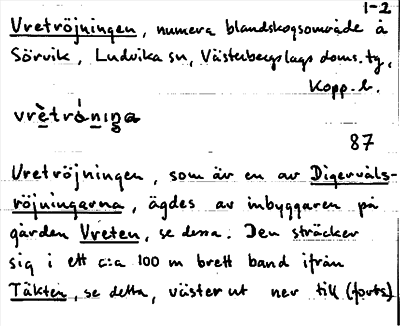 1-2
Vretröjningen, numera blandskogsområde å
Sörvik, Ludvika sn, Västerbergslags doms. tg,
Kopp. l.
vrètrö́niŋa
87
Vretröjningen, som är en av Digervåls-
röjningarna, ägdes av inbyggaren på
gården Vreten, se dessa. Den sträcker
sig i ett c:a 100 m brett band ifrån
Täkten, se detta, väster ut ner till (forts)